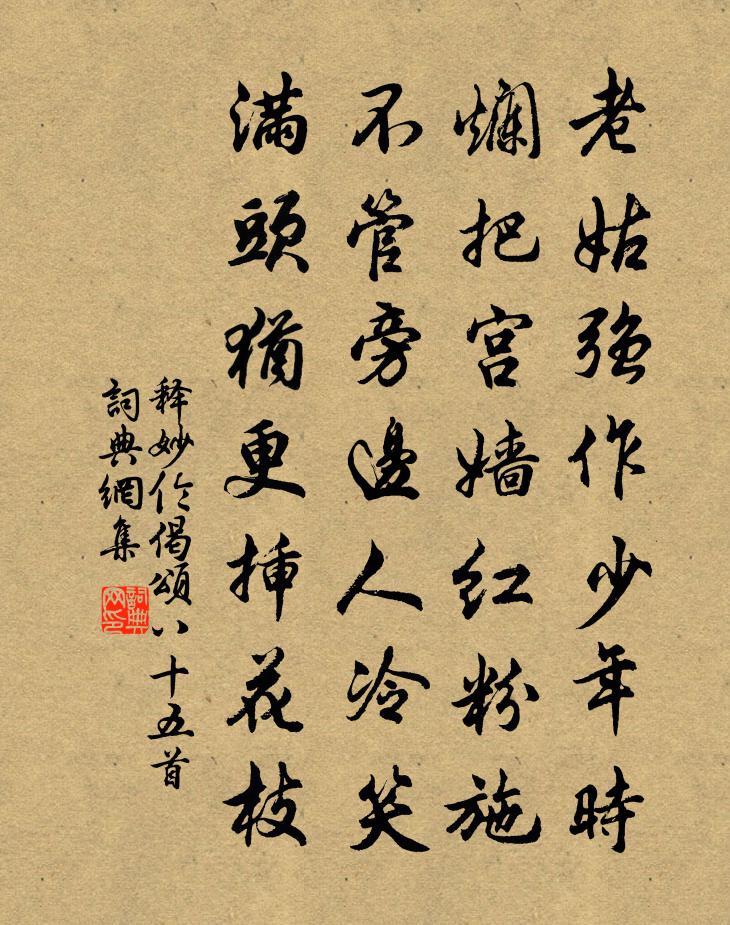 老姑強作少年時
爛把宫嬙紅粉施
不管旁邊人冷笑
滿頭猶更揷花枝
释妙伦偈頌八十五首
詞典網集
詞典網印